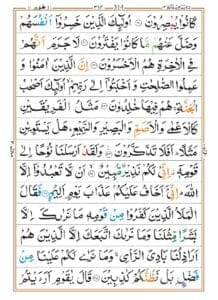 كَانُوْا يُبْصِرُوْنَ ۝ اُولٰٓئِكَ الَّذِيْنَ خَسِرُوْٓا اَنْفُسَهُمْ
وَضَلَّ عَنْهُمْ مَّا كَانُوْا يَفْتَرُوْنَ ۝ لَا جَرَمَ اَنَّهُمْ
فِي الْاٰخِرَةِ هُمُ الْاَخْسَرُوْنَ ۝ اِنَّ الَّذِيْنَ اٰمَنُوْا وَ
عَمِلُوا الصّٰلِحٰتِ وَاَخْبَتُوْٓا اِلٰى رَبِّهِمْ اُولٰٓئِكَ اَصْحٰبُ
الْجَنَّةِ هُمْ فِيْهَا خٰلِدُوْنَ ۝ مَثَلُ الْفَرِيْقَيْنِ
كَالْاَعْمٰى وَالْاَصَمِّ وَالْبَصِيْرِ وَالسَّمِيْعِ هَلْ يَسْتَوِيٰنِ
مَثَلًا اَفَلَا تَذَكَّرُوْنَ ۝ وَلَقَدْ اَرْسَلْنَا نُوْحًا اِلٰى
قَوْمِهٖٓ اِنِّيْ لَكُمْ نَذِيْرٌ مُّبِيْنٌ ۝ اَنْ لَّا تَعْبُدُوْٓا اِلَّا
اللّٰهَ اِنِّيْٓ اَخَافُ عَلَيْكُمْ عَذَابَ يَوْمٍ اَلِيْمٍ ۝ فَقَالَ
الْمَلَاُ الَّذِيْنَ كَفَرُوْا مِنْ قَوْمِهٖ مَا نَرٰىكَ اِلَّا
بَشَرًا مِّثْلَنَا وَمَا نَرٰىكَ اتَّبَعَكَ اِلَّا الَّذِيْنَ هُمْ
اَرَاذِلُنَا بَادِيَ الرَّاْيِ وَمَا نَرٰى لَكُمْ عَلَيْنَا مِنْ
فَضْلٍۢ بَلْ نَظُنُّكُمْ كٰذِبِيْنَ ۝ قَالَ يٰقَوْمِ اَرَءَيْتُمْ